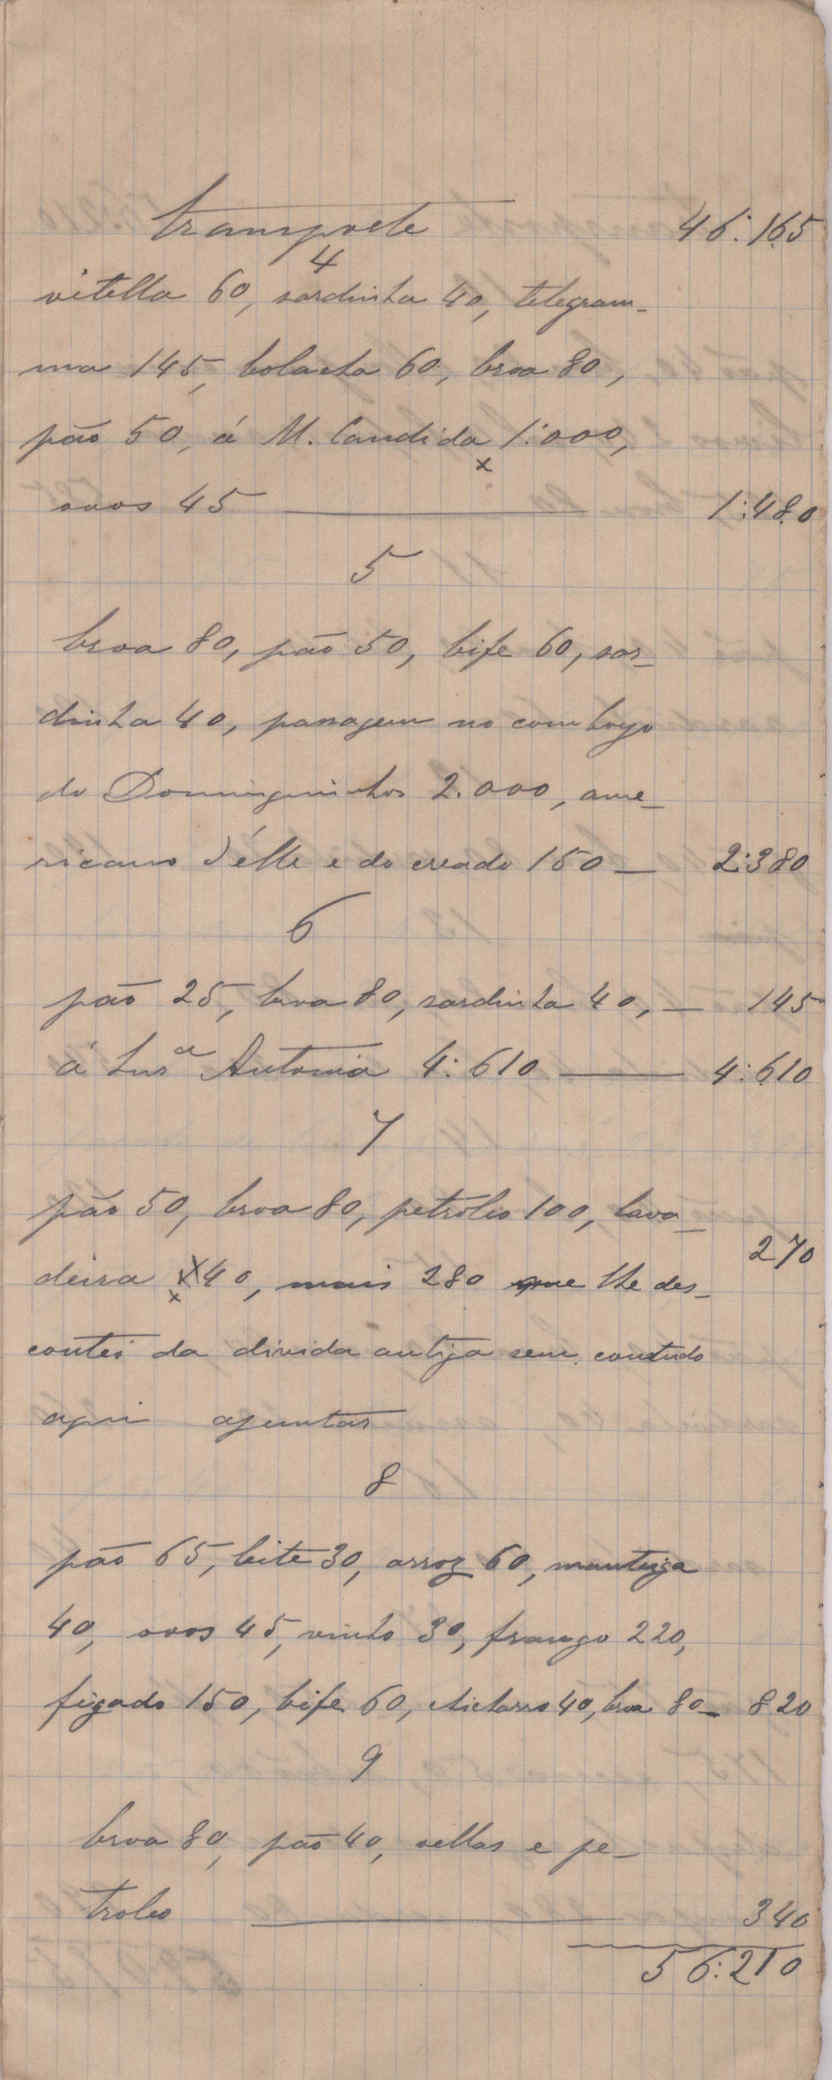 transporte 46:165
4
vitella 60, sardinha 40, telegram-
ma 145, bolacha 60, broa 80,
pão 50, á M. Candida 1:000,
x
ovos 45 — 1:480
5
broa 80, pão 50, bife 60, sar-
dinha 40, passagem no comboyo
do Dominguinhos 2.000, ame-
ricano d'élle e do creado 150 — 2:380
6
pão 25, broa 80, sardinha 40, — 145
á Snr.ª Antonia 4:610 — 4:610
7
pão 50, broa 80, petroleo 100, lava-
270
deira 40, mais 280 que lhe des-
contei da divida antiga sem, contudo
aqui ajuntar
8
pão 65, leite 30, arroz 60, manteiga
40, ovos 45, vinho 30, frango 220,
figado 150, bife 60, chicharro 40, broa 80 — 820
9
broa 80, pão 40, vellas e pe-
troleo — 340
56:210